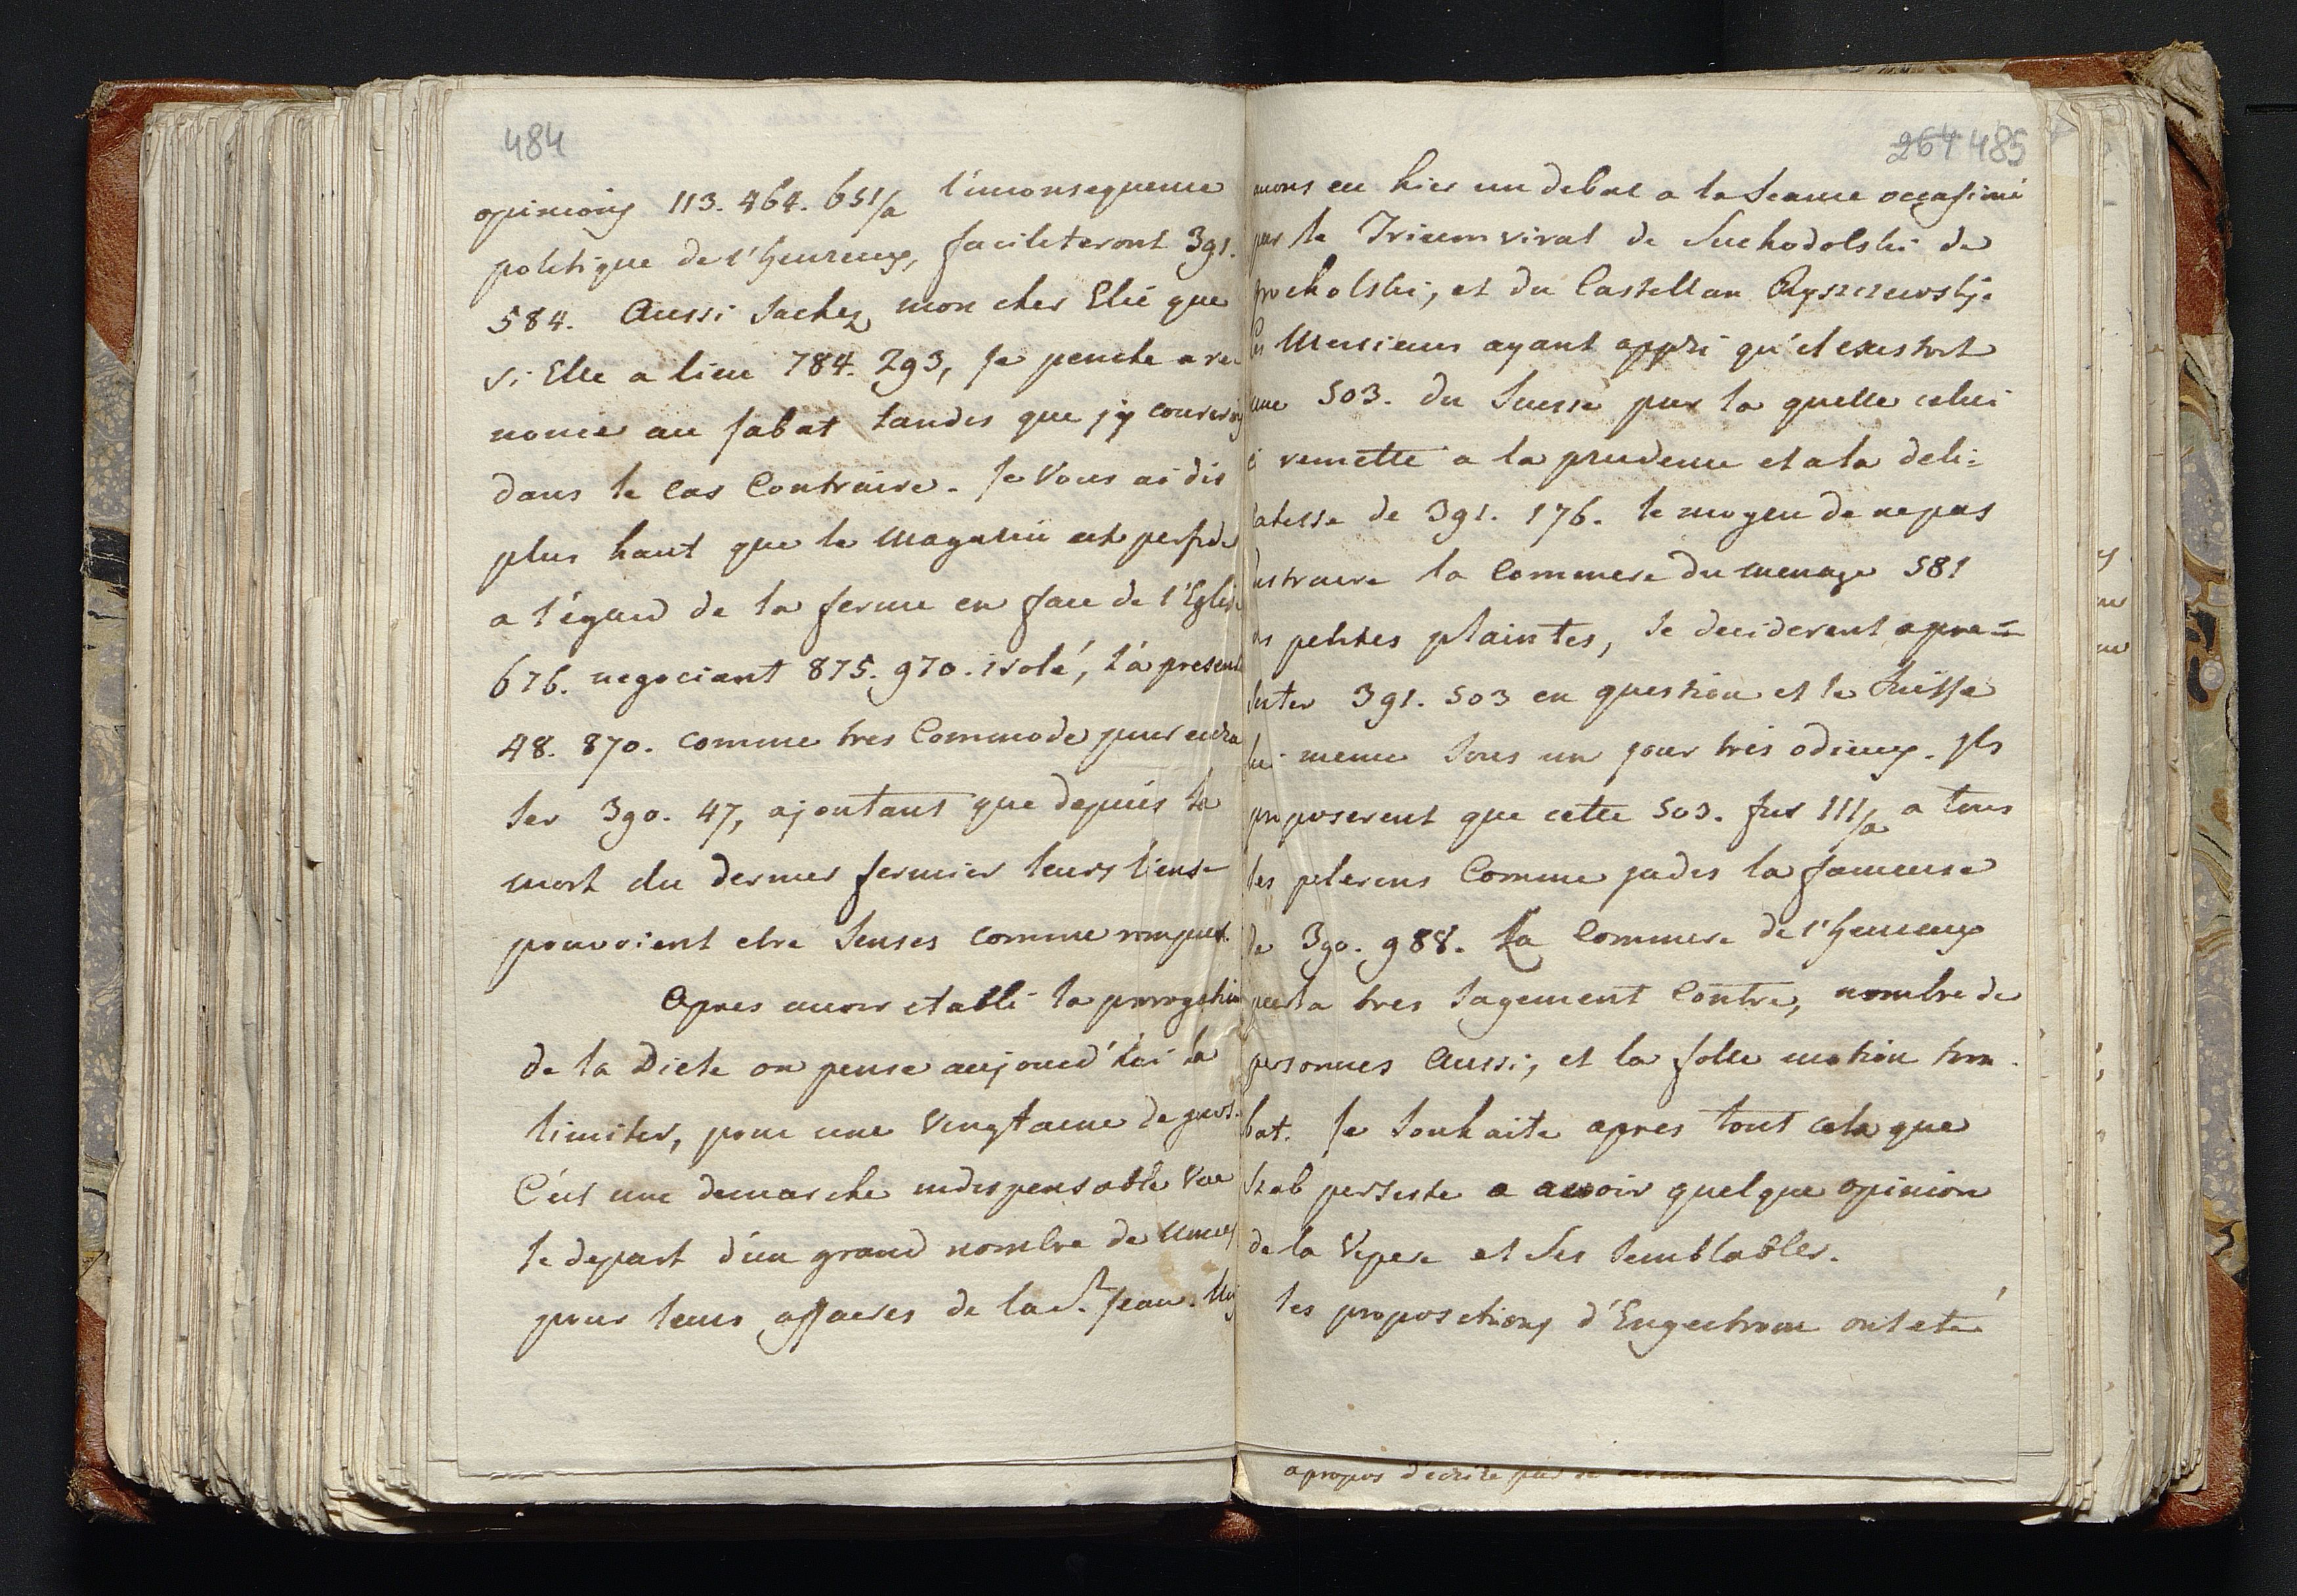 484
opinions 113. 464. 651/a l'inconsequence
politique de l'heureux, faciliteront 391.
584. Aussi sachez mon cher Elie que
si Elle a lieu 784. 293, je penche a re
noncer au sabat tandis que j'y
dans le cas Contraire. Je Vous ai dis
plus haut que le Magasin est perfide
a l'égard de la ferme en face de l'Eglise
676. negociant 875. 970. isolé, l'a presenté
48. 870. comme tres Commode pour
ser 390. 47, ajoutant que depuis la
mort du dernier fermier leurs liens
pouvoient etre senses comme rompus.
Apres avoir etabli la prorogation
de la Diete on pense aujourd'hui la
limiter, pour une vingtaine de jours.
C'est une demarche indispensable vue
le depart d'un grand nombre de
pour leurs affaires de la St. Jean.
264 485
avons eu hier un debat a la Seance occasioné
par le Triumvirat de Suchodolski de
prockolski, et du Castellan Ryszczewski.
Ces Messieurs ayant appri qu'il existoit
une 503. du Suisse par la quelle celui
ci remette a la prudence et a la deli=
catesse de 391. 176. le moyen de ne pas
instruire la Commere du menage 581
ses petites plaintes, se deciderent a pre=
senter 391. 503 en question et le Suisse
lui meme sous un jour très odieux. Ils
proposerent que cette 503. fut 111/a a tous
les pelerins Comme jadis la fameuse
de 390. 988. La Commere de l'heureux
parla tres sagement contre, nombre de
personnes aussi, et la folle motion tom
bat. Je souhaite apres tout cela que
Szab persiste a avoir quelque opinion
de la Vipere et ses semblables.
les propositions d'Engestrom ont eté
apropos d'ecrire par